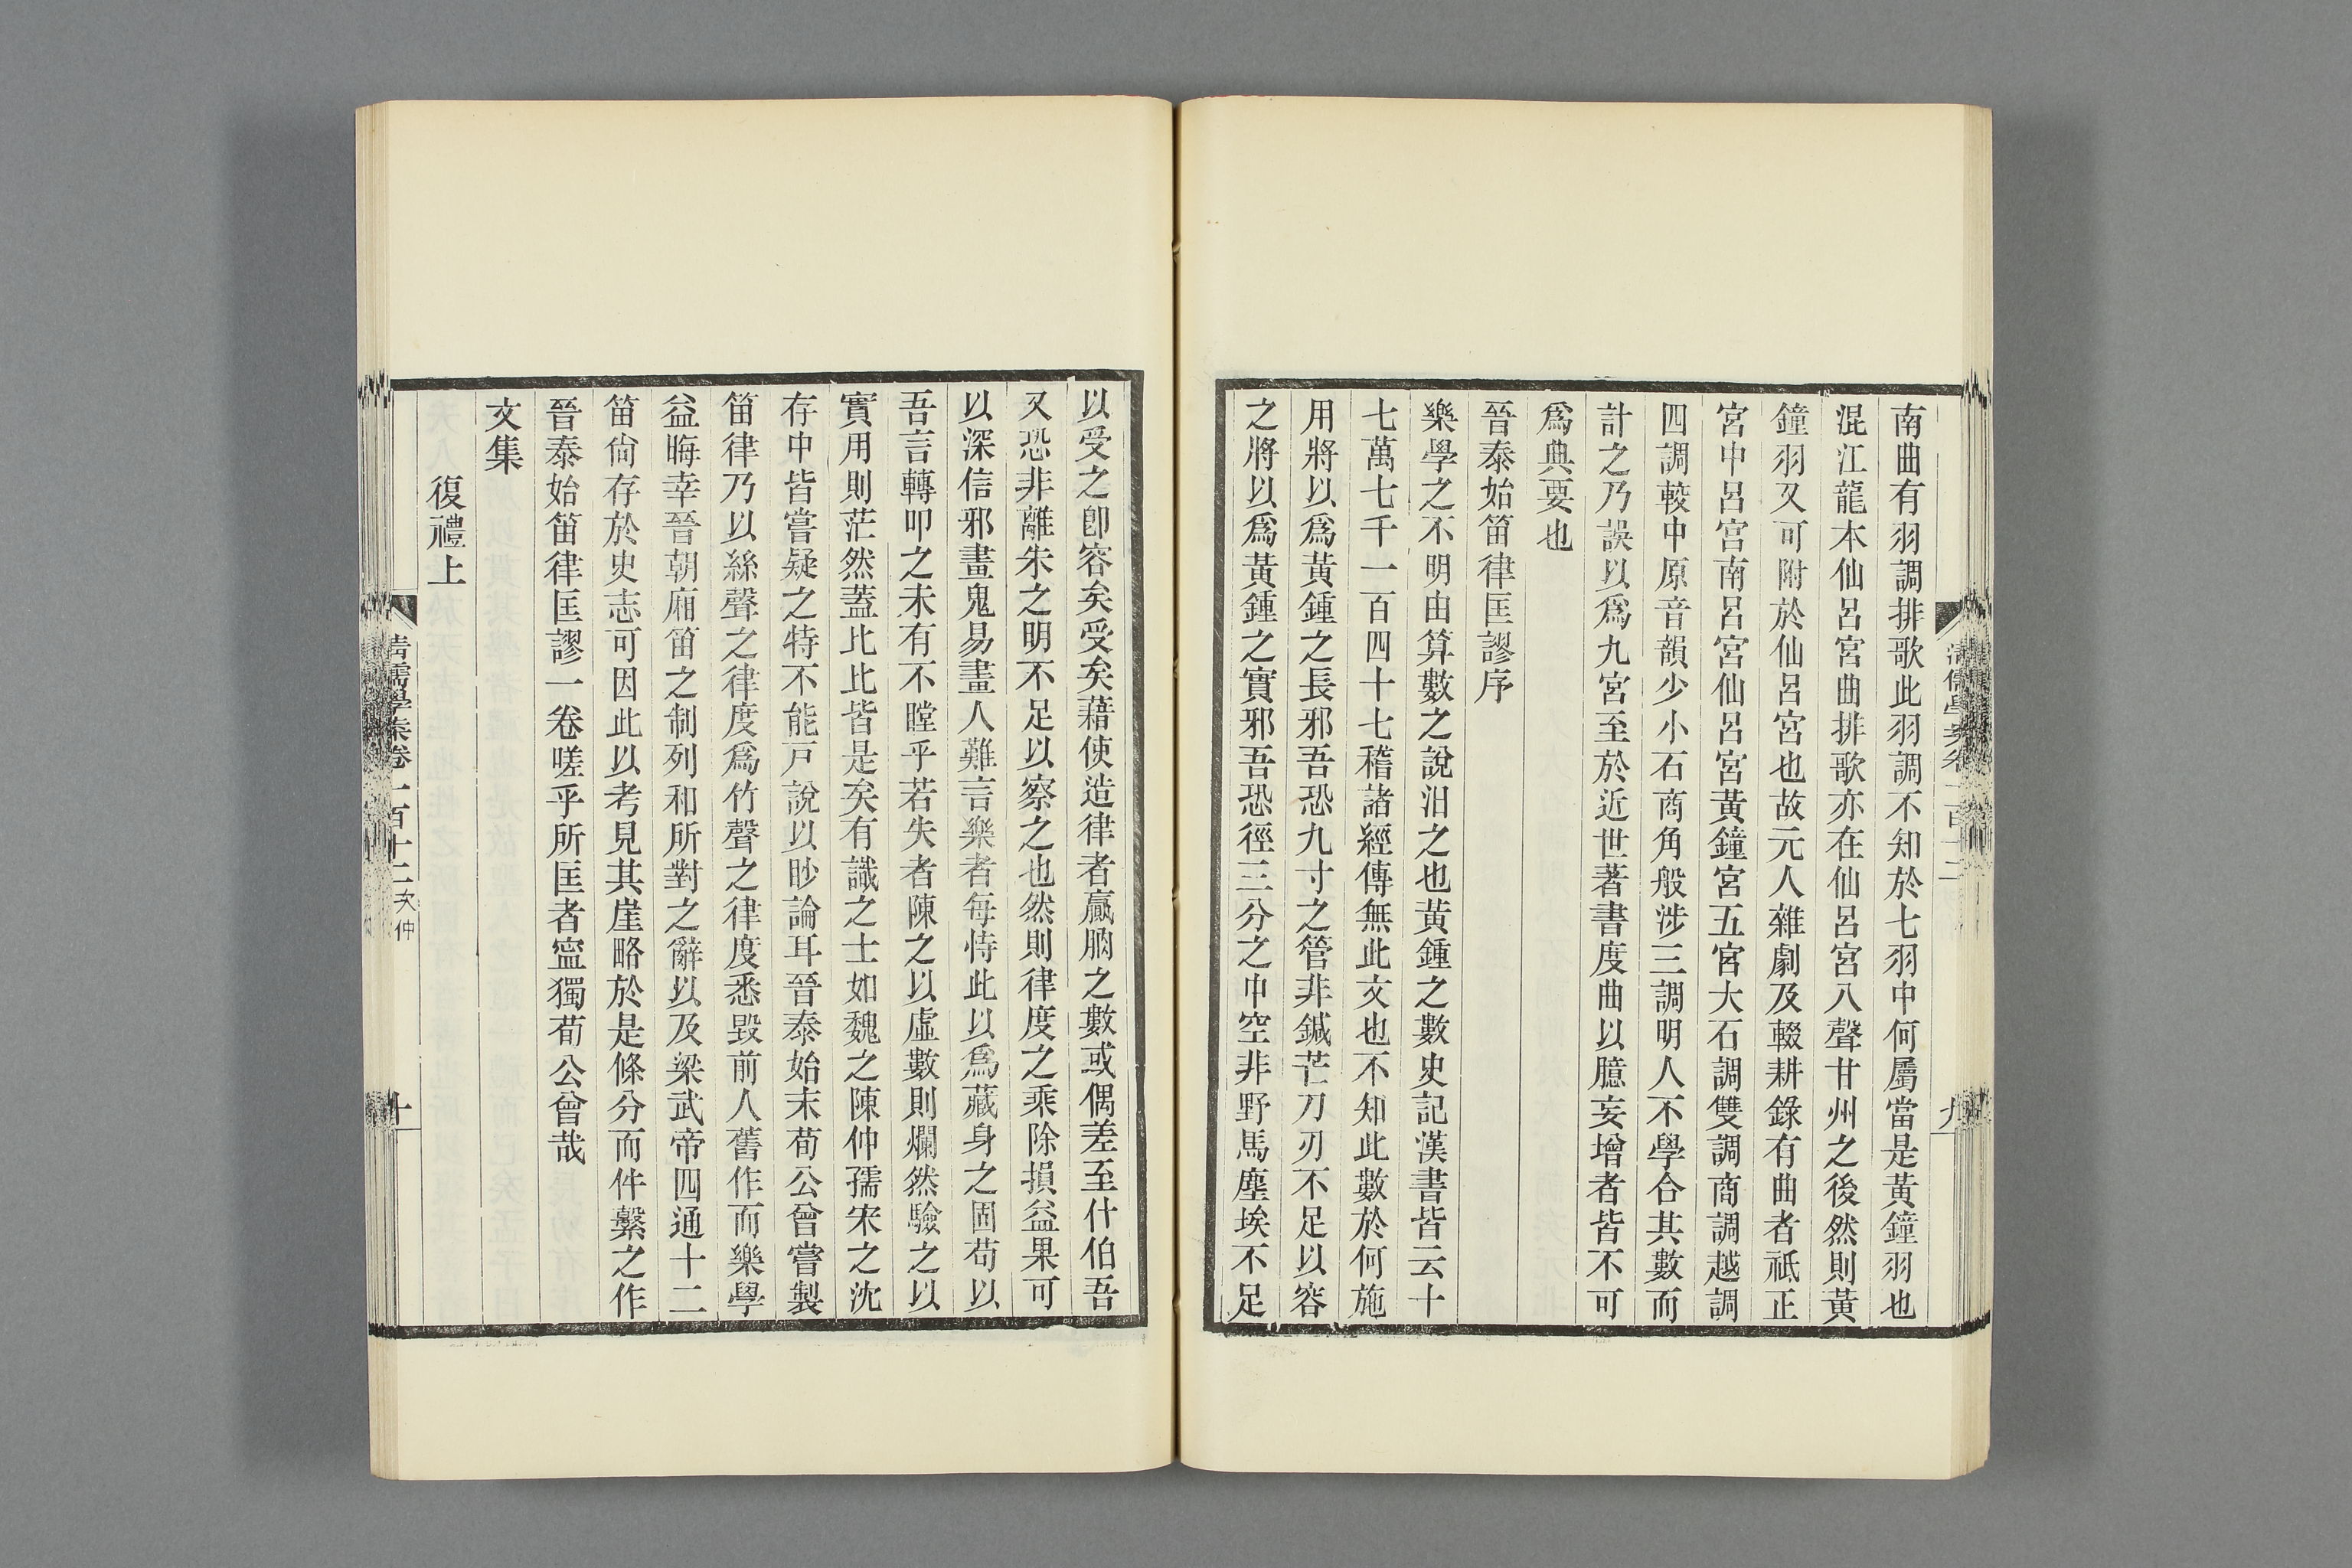 南曲有羽調排歌此羽調不知於七羽中何屬當是黃鐘羽也
混江龍本仙呂宮曲排歌亦在仙呂宮八聲甘州之後然則黃
鐘羽又可附於仙呂宮也故元人雜劇及輟耕錄有曲者祗正
宮中呂宮南呂宮仙呂宮黃鐘宮五宮大石調雙調商調越調
四調較中原音韻少小石商角般涉三調明人不學合其數而
計之乃誤以爲九宮至於近世著書度曲以臆妄增者皆不可
爲典要也
晉泰始笛律匡謬序
樂學之不明由算數之說汨之也黃鍾之數史記漢書皆云十
七萬七千一百四十七稽諸經傳無此文也不知此數於何施
用將以爲黃鍾之長邪吾恐九寸之管非鍼芒刀刃不足以容
之將以爲黃鍾之實邪吾恐徑三分之中空非野馬塵埃不足
以受之卽容矣受矣藉使造律者贏朒之數或偶差至什伯吾
又恐非離朱之明不足以察之也然則律度之乘除損益果可
以深信邪畫鬼易畫人難言樂者每恃此以爲藏身之固苟以
吾言轉叩之未有不瞠乎若失者陳之以虛數則爛然驗之以
實用則茫然蓋比比皆是矣有識之士如魏之陳仲孺宋之沈
存中皆嘗疑之特不能戸說以眇論耳晉泰始末荀公曾嘗製
笛律乃以絲聲之律度爲竹聲之律度悉毀前人舊作而樂學
益晦幸晉朝廂笛之制列和所對之辭以及梁武帝四通十二
笛尙存於史志可因此以考見其崖略於是條分而件繫之作
晉泰始笛律匡謬一卷嗟乎所匡者寍獨荀公曾哉
文集
復禮上
清儒學案卷一百十二 次仲
十